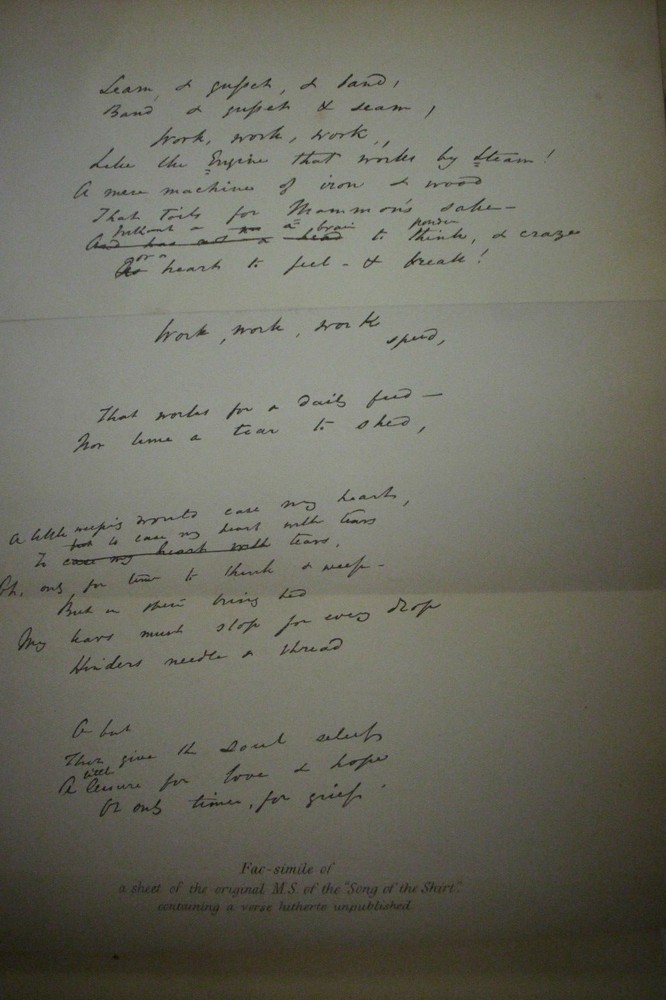 Seam, & gusset, & band,
Band & gusset & seam,
Work, work, work,
Like the Engine that works by Steam!
A mere machine of iron & wood
That Toils for Mammon's sake—
Without a brain to ponder & craze
And has not a head to think,
Or a heart to feel — & break!
Work, work, work
speed,
That works for a daily feed —
Nor time a tear to shed,
A little weeping would ease my heart,
to ease my heart with tears
To ease my heart with tears,
Oh, only for time to think & weep —
But in their briny bed
My tears must stop for every drop
Hinders needle & thread
A but
Thus give the soul relief
A little leisure for love & hope
Or only time, for grief.
Fac-simile of
a sheet of the original M.S. of the "Song of the Shirt"
containing a verse hitherto unpublished